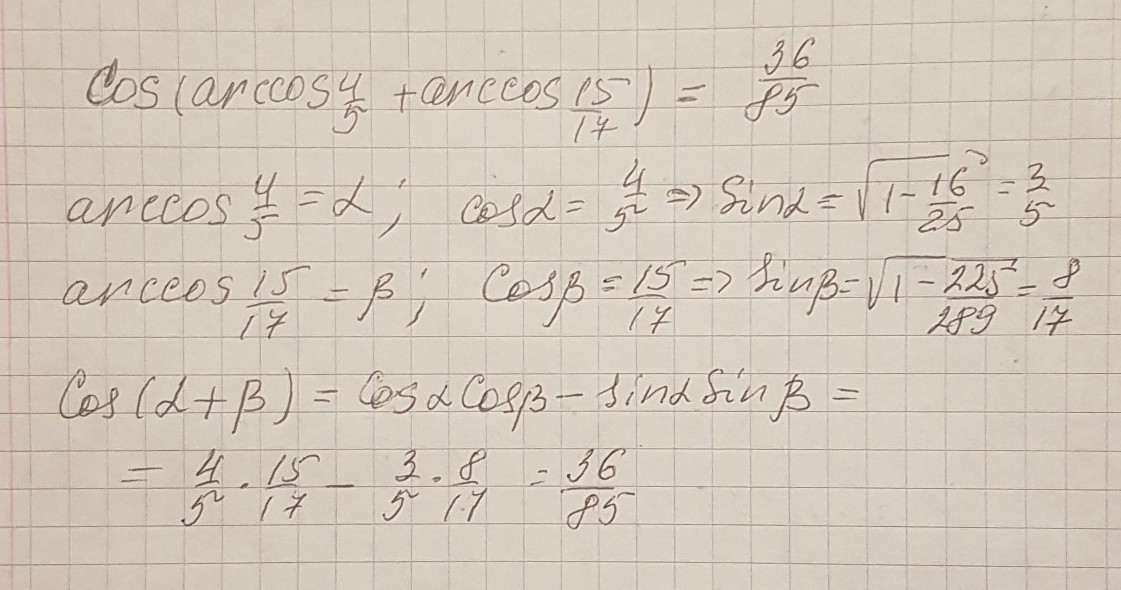 Cos(arccos 4/5 + arccos 15/17) = 36/85
arccos 4/5 = α; cosα = 4/5 => Sinα = √(1 - 16/25) = 3/5
arccos 15/17 = β; Cosβ = 15/17 => Sinβ = √(1 - 225/289) = 8/17
Cos(α+β) = Cosα Cosβ - sinα Sinβ =
= 4/5 · 15/17 - 3/5 · 8/17 = 36/85